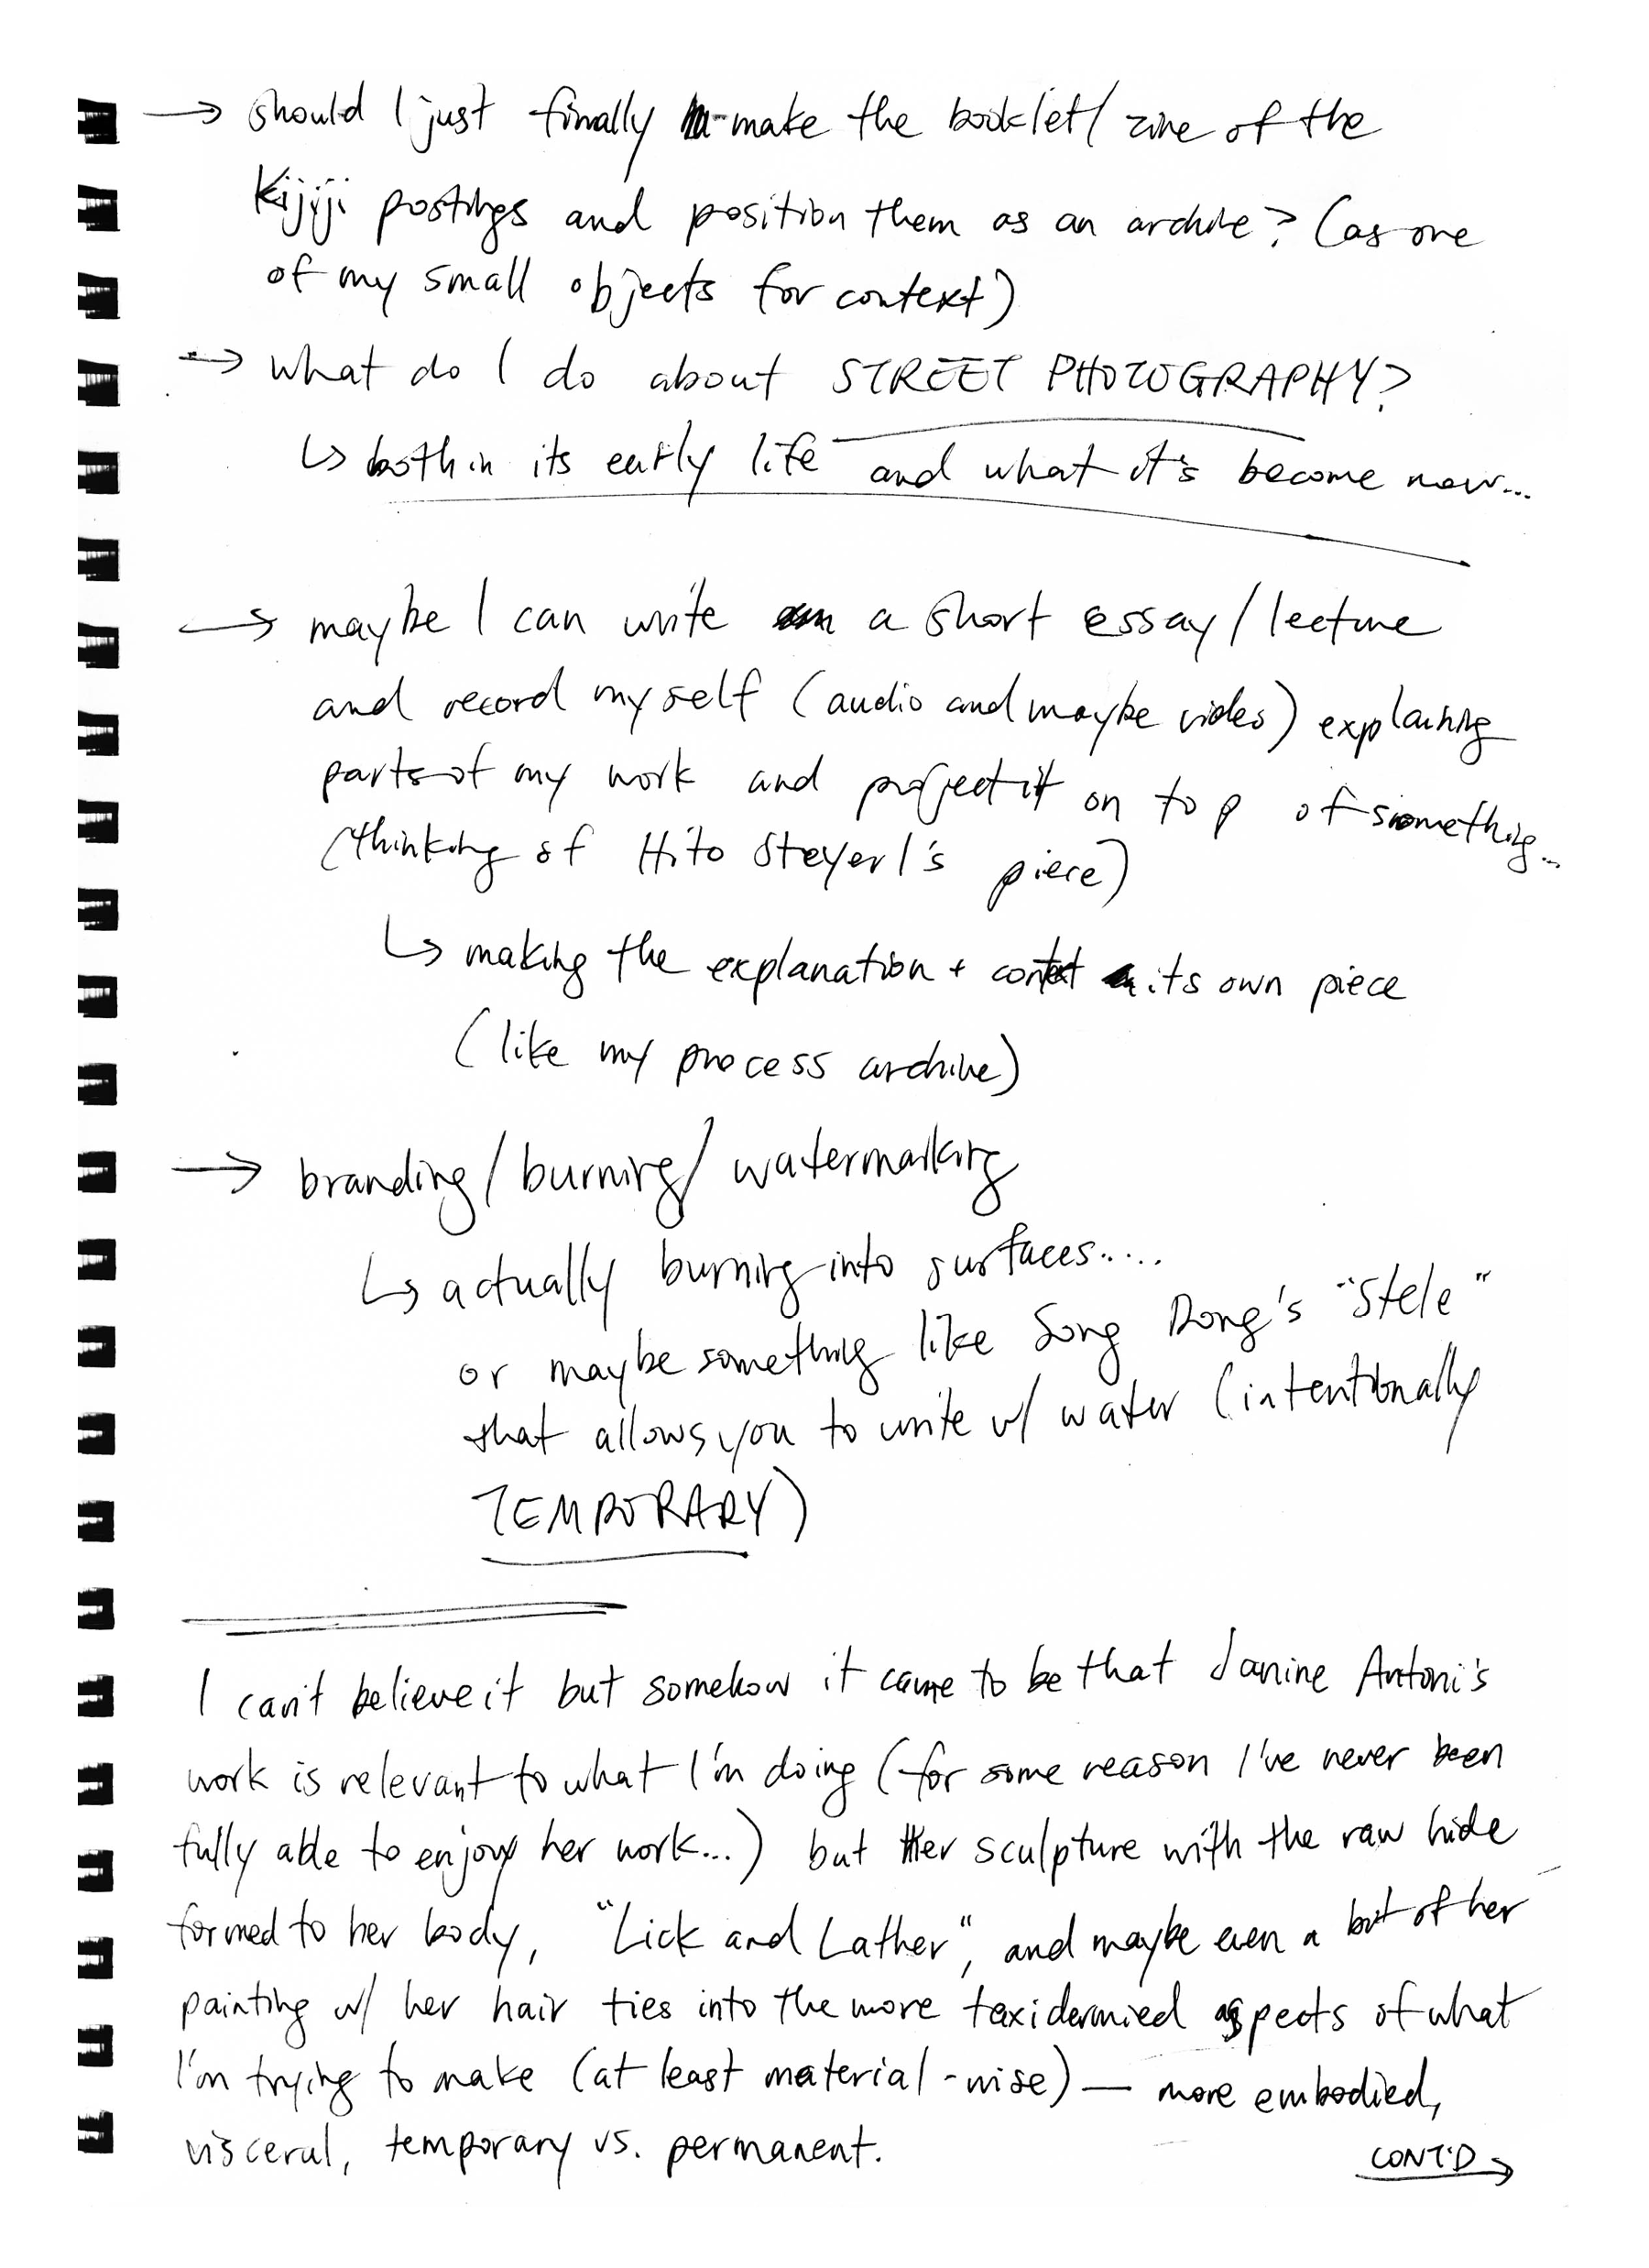 → should I just finally make the booklet/zine of the
Kijiji postings and position them as an archive? (as one
of my small objects for context)
→ what do I do about STREET PHOTOGRAPHY?
↳ both in its early life and what it's become now...
→ maybe I can write a short essay/lecture
and record myself (audio and maybe video) explaining
parts of my work and project it on top of something...
(thinking of Hito Steyerl's piece)
↳ making the explanation + context its own piece
(like my process archive)
→ branding/burning/watermarking
↳ actually burning into surfaces.....
or maybe something like Song Dong's "Stele"
that allows you to write w/ water (intentionally
TEMPORARY)
I can't believe it but somehow it came to be that Janine Antoni's
work is relevant to what I'm doing (for some reason I've never been
fully able to enjoy her work...) but Her sculpture with the raw hide
formed to her body, "Lick and Lather", and maybe even a bit of her
painting w/ her hair ties into the more taxidermied aspects of what
I'm trying to make (at least material-wise) — more embodied,
visceral, temporary vs. permanent.
CONT'D →